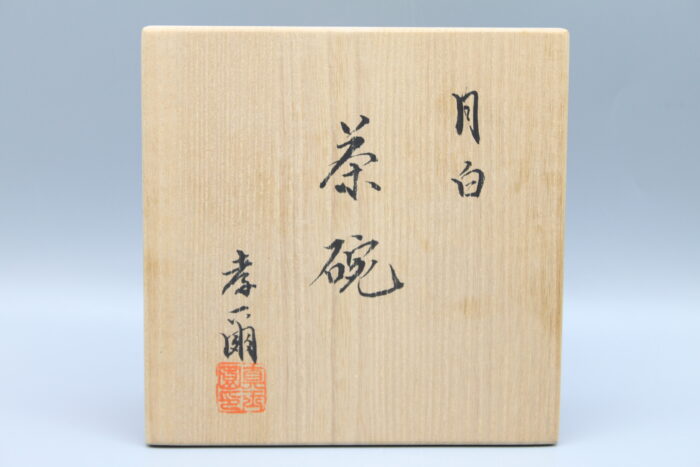 月白
茶碗
孝爾